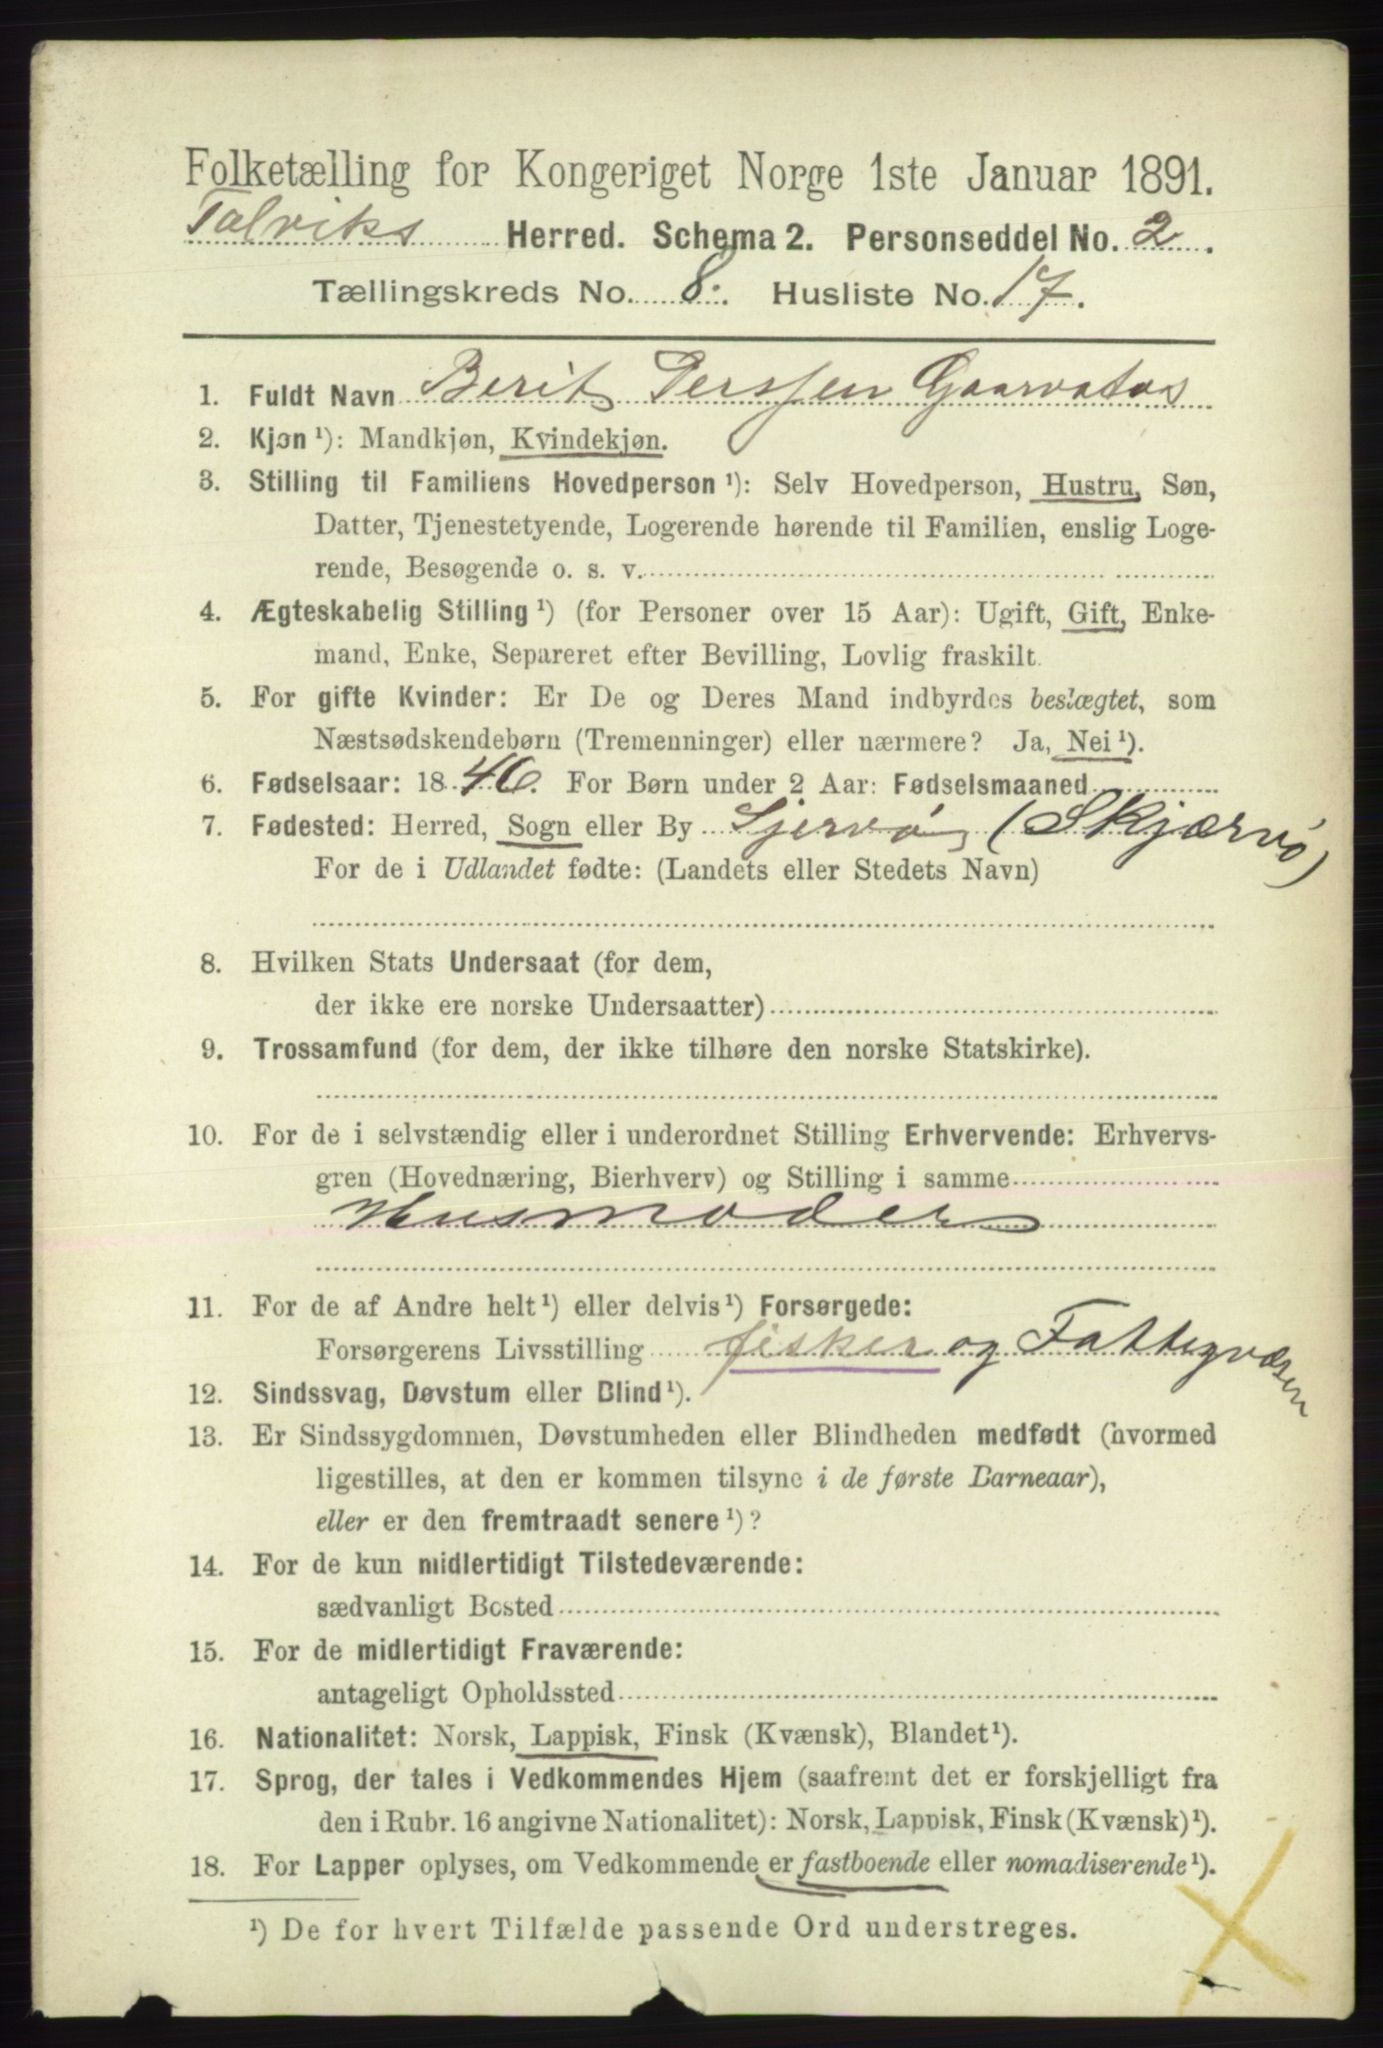 Folketælling for Kongeriget Norge 1ste Januar 1891.
Talviks Herred. Schema 2. Personseddel No. 2.
Tællingskreds No. 8. Husliste No. 17.
1. Fuldt Navn Berit Perssen Gaarvatas
2. Kjøn ¹): Mandkjøn, Kvindekjøn.
3. Stilling til Familiens Hovedperson ¹): Selv Hovedperson, Hustru, Søn,
Datter, Tjenestetyende, Logerende hørende til Familien, enslig Loge-
rende, Besøgende o. s. v.
4. Ægteskabelig Stilling ¹) (for Personer over 15 Aar): Ugift, Gift, Enke-
mand, Enke, Separeret efter Bevilling, Lovlig fraskilt.
5. For gifte Kvinder: Er De og Deres Mand indbyrdes beslægtet, som
Næstsødskendebørn (Tremenninger) eller nærmere? Ja, Nei ¹).
6. Fødselsaar: 1846. For Børn under 2 Aar: Fødselsmaaned
7. Fødested: Herred, Sogn eller By Sjervø (Skjærvø)
For de i Udlandet fødte: (Landets eller Stedets Navn)
8. Hvilken Stats Undersaat (for dem,
der ikke ere norske Undersaatter)
9. Trossamfund (for dem, der ikke tilhøre den norske Statskirke).
10. For de i selvstændig eller i underordnet Stilling Erhvervende: Erhvervs-
gren (Hovednæring, Bierhverv) og Stilling i samme
Husmoder
11. For de af Andre helt ¹) eller delvis ¹) Forsørgede:
Forsørgerens Livsstilling fisker og Fattigvæsen
12. Sindssvag, Døvstum eller Blind ¹).
13. Er Sindssygdommen, Døvstumheden eller Blindheden medfødt (hvormed
ligestilles, at den er kommen tilsyne i de første Barneaar),
eller er den fremtraadt senere ¹)?
14. For de kun midlertidigt Tilstedeværende:
sædvanligt Bosted
15. For de midlertidigt Fraværende:
antageligt Opholdssted
16. Nationalitet: Norsk, Lappisk, Finsk (Kvænsk), Blandet ¹).
17. Sprog, der tales i Vedkommendes Hjem (saafremt det er forskjelligt fra
den i Rubr. 16 angivne Nationalitet): Norsk, Lappisk, Finsk (Kvænsk) ¹).
18. For Lapper oplyses, om Vedkommende er fastboende eller nomadiserende ¹).
¹) De for hvert Tilfælde passende Ord understreges.